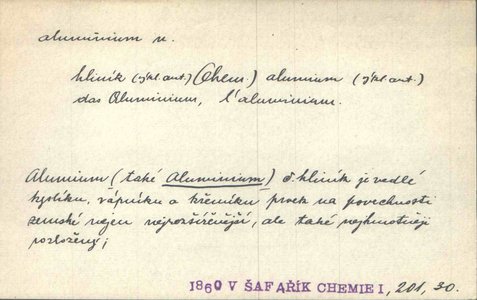 aluminium n.
hliník (jkl. aut.) (Chem.) alumium (jkl. aut.)
das Aluminium, l'aluminium.
Alumium (také Aluminium) č. hliník je vedlé
kyslíku, vápníku a křemíku prvek na povrchnosti
zemské nejen nejrozšířenější, ale také nejhmotněji
rozložený;
1860 V ŠAFAŘÍK CHEMIE I, 201, 30.